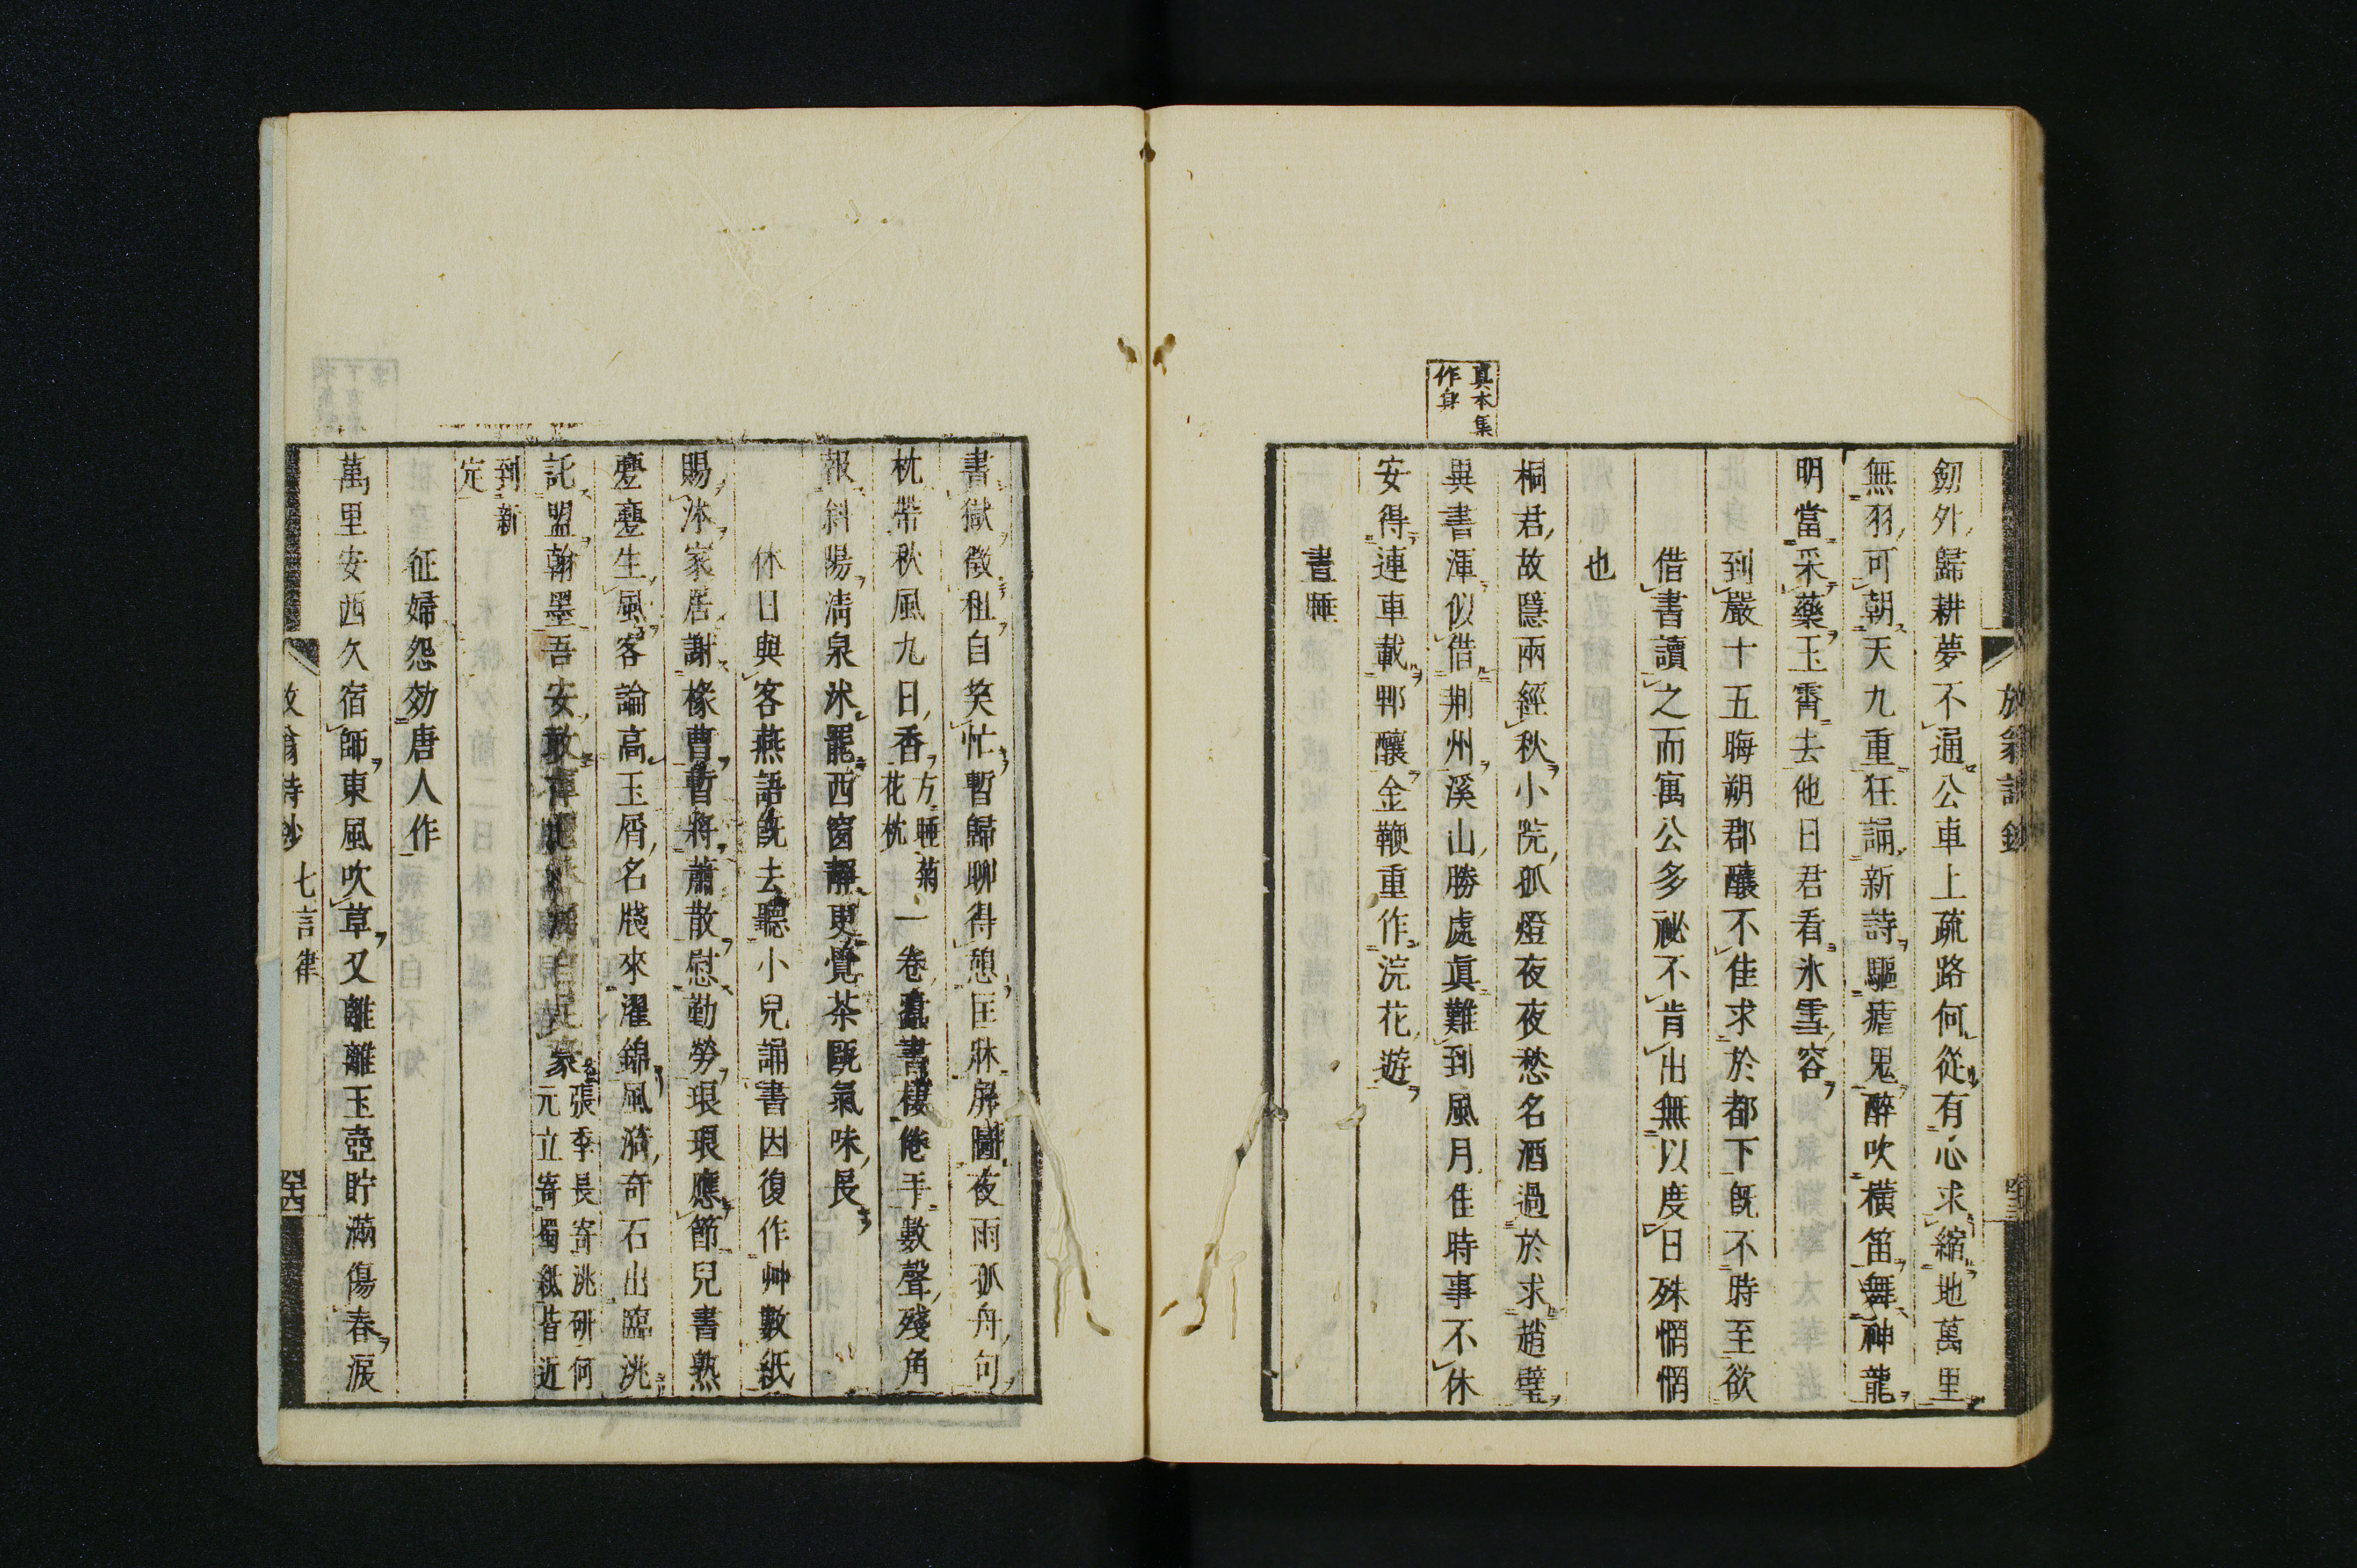 放翁詩鈔
劒外歸耕夢不通公車上疏路何從有心求縮地萬里
無羽可朝天九重狂誦新詩驅瘧鬼醉吹橫笛舞神龍
明當采藥玉霄去他日君看氷雪容
到嚴十五晦朔郡釀不佳求於都下旣不時至欲
借書讀之而寓公多祕不肯出無以度日殊惘惘
也
桐君故隱兩經秋小院孤燈夜夜愁名酒過於求趙璧
真本集
作身
異書渾似借荆州溪山勝處眞難到風月佳時事不休
安得連車載郫釀金鞭重作浣花遊
晝睡
書獄徵租自笑忙暫歸聊得憩匡牀屏圖夜雨孤舟句
枕帶秋風九日香
方睡菊
花枕
一卷蠹書棲倦手數聲殘角
報斜陽淸泉沐罷西窗靜更覺茶甌氣味長
休日與客燕語旣去聽小兒誦書因復作艸數紙
賜沐家居謝椽曹暫將蕭散慰勤勞琅琅應節兒書熟
亹亹生風客論高玉屑名牋來濯錦風漪奇石出臨洮
託盟翰墨吾安敢
豪
張季長寄洮硏何
元立寄蜀紙皆近
到新
定
征婦怨効唐人作
萬里安西久宿師東風吹草又離離玉壺貯滿傷春淚
放翁詩鈔
七言律